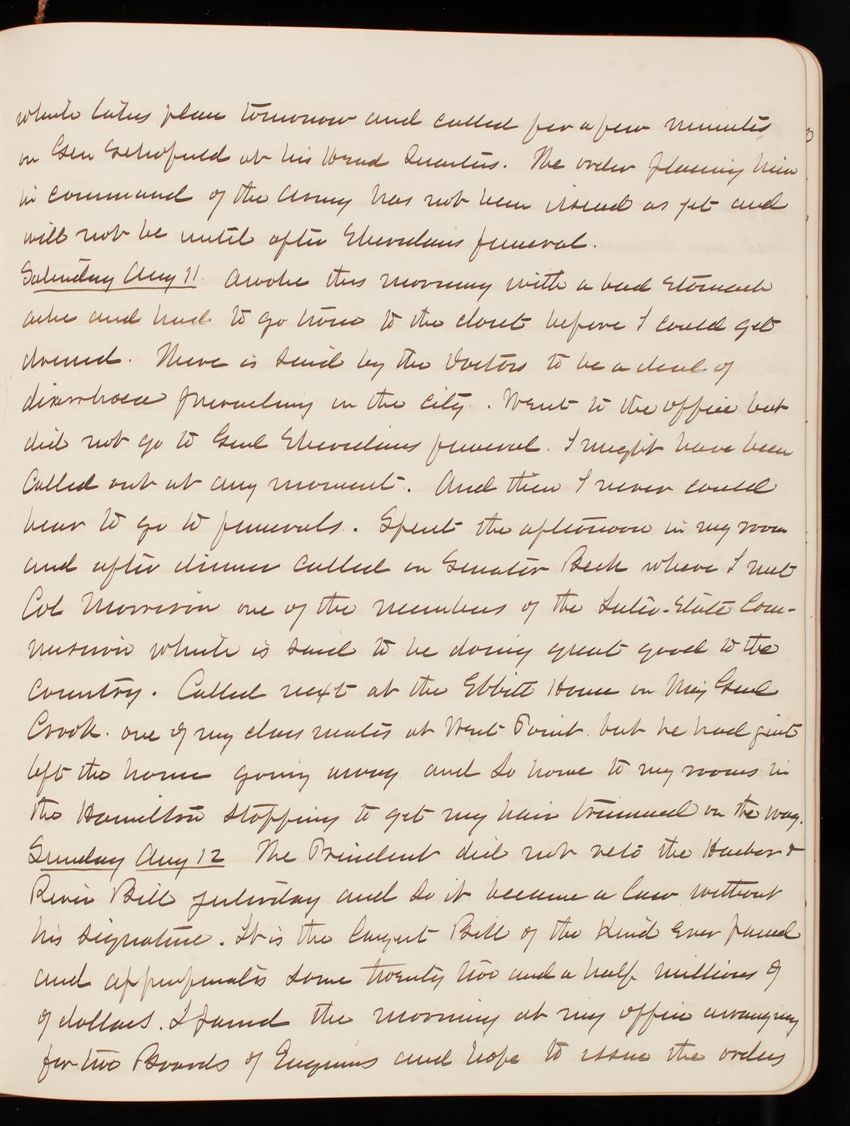 which takes place tomorrow and called for a few minutes
on Gen Schofield at his Head Quarters. The order placing him
in command of the Army has not been issued as yet and
will not be until after Sheridans funeral.
Saturday Aug 11. Awoke this morning with a bad stomach
ache and had to go twice to the closet before I could get
dressed. There is said by the Doctors to be a deal of
diarrhoea prevailing in the city. Went to the office but
did not go to Genl Sheridans funeral. I might have been
called out at any moment. And then I never could
bear to go to funerals. Spent the afternoon in my room
and after dinner called on Senator Beck where I met
Col Morrison one of the members of the Inter-State Com-
mission which is said to be doing great good to the
country. Called next at the Ebbitt House on Maj Genl
Crook. one of my class mates at West Point but he had just
left the house going away and so home to my rooms in
the Hamilton stopping to get my hair trimmed on the way.
Sunday Aug 12 The President did not veto the Harbor &
River Bill yesterday and so it became a law without
his signature. It is the largest Bill of the kind ever passed
and appropriates some twenty two and a half millions of
of dollars. I passed the morning at my office arranging
for two Boards of Engineers and hope to issue the orders